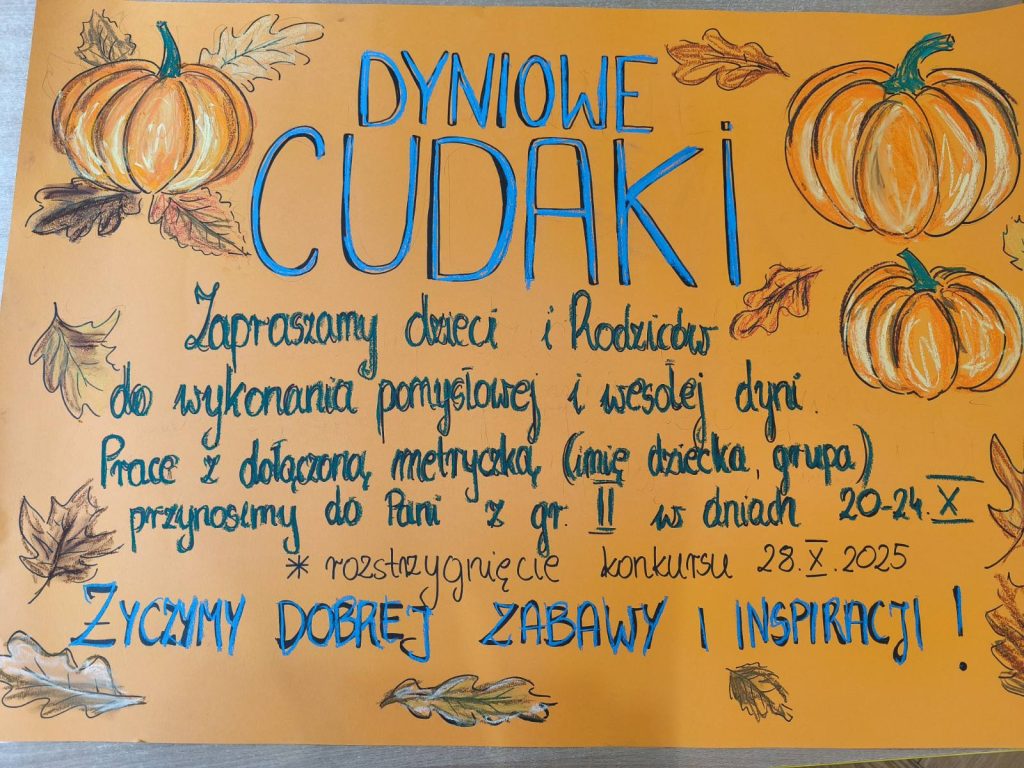 DYNIOWE
CUDAKI
Zapraszamy dzieci i Rodziców
do wykonania pomysłowej i wesołej dyni.
Prace z dołączoną metryczką (imię dziecka, grupa)
przynosimy do Pani z gr. II w dniach 20-24.X
* rozstrzygnięcie konkursu 28.X.2025
ŻYCZYMY DOBREJ ZABAWY I INSPIRACJI!